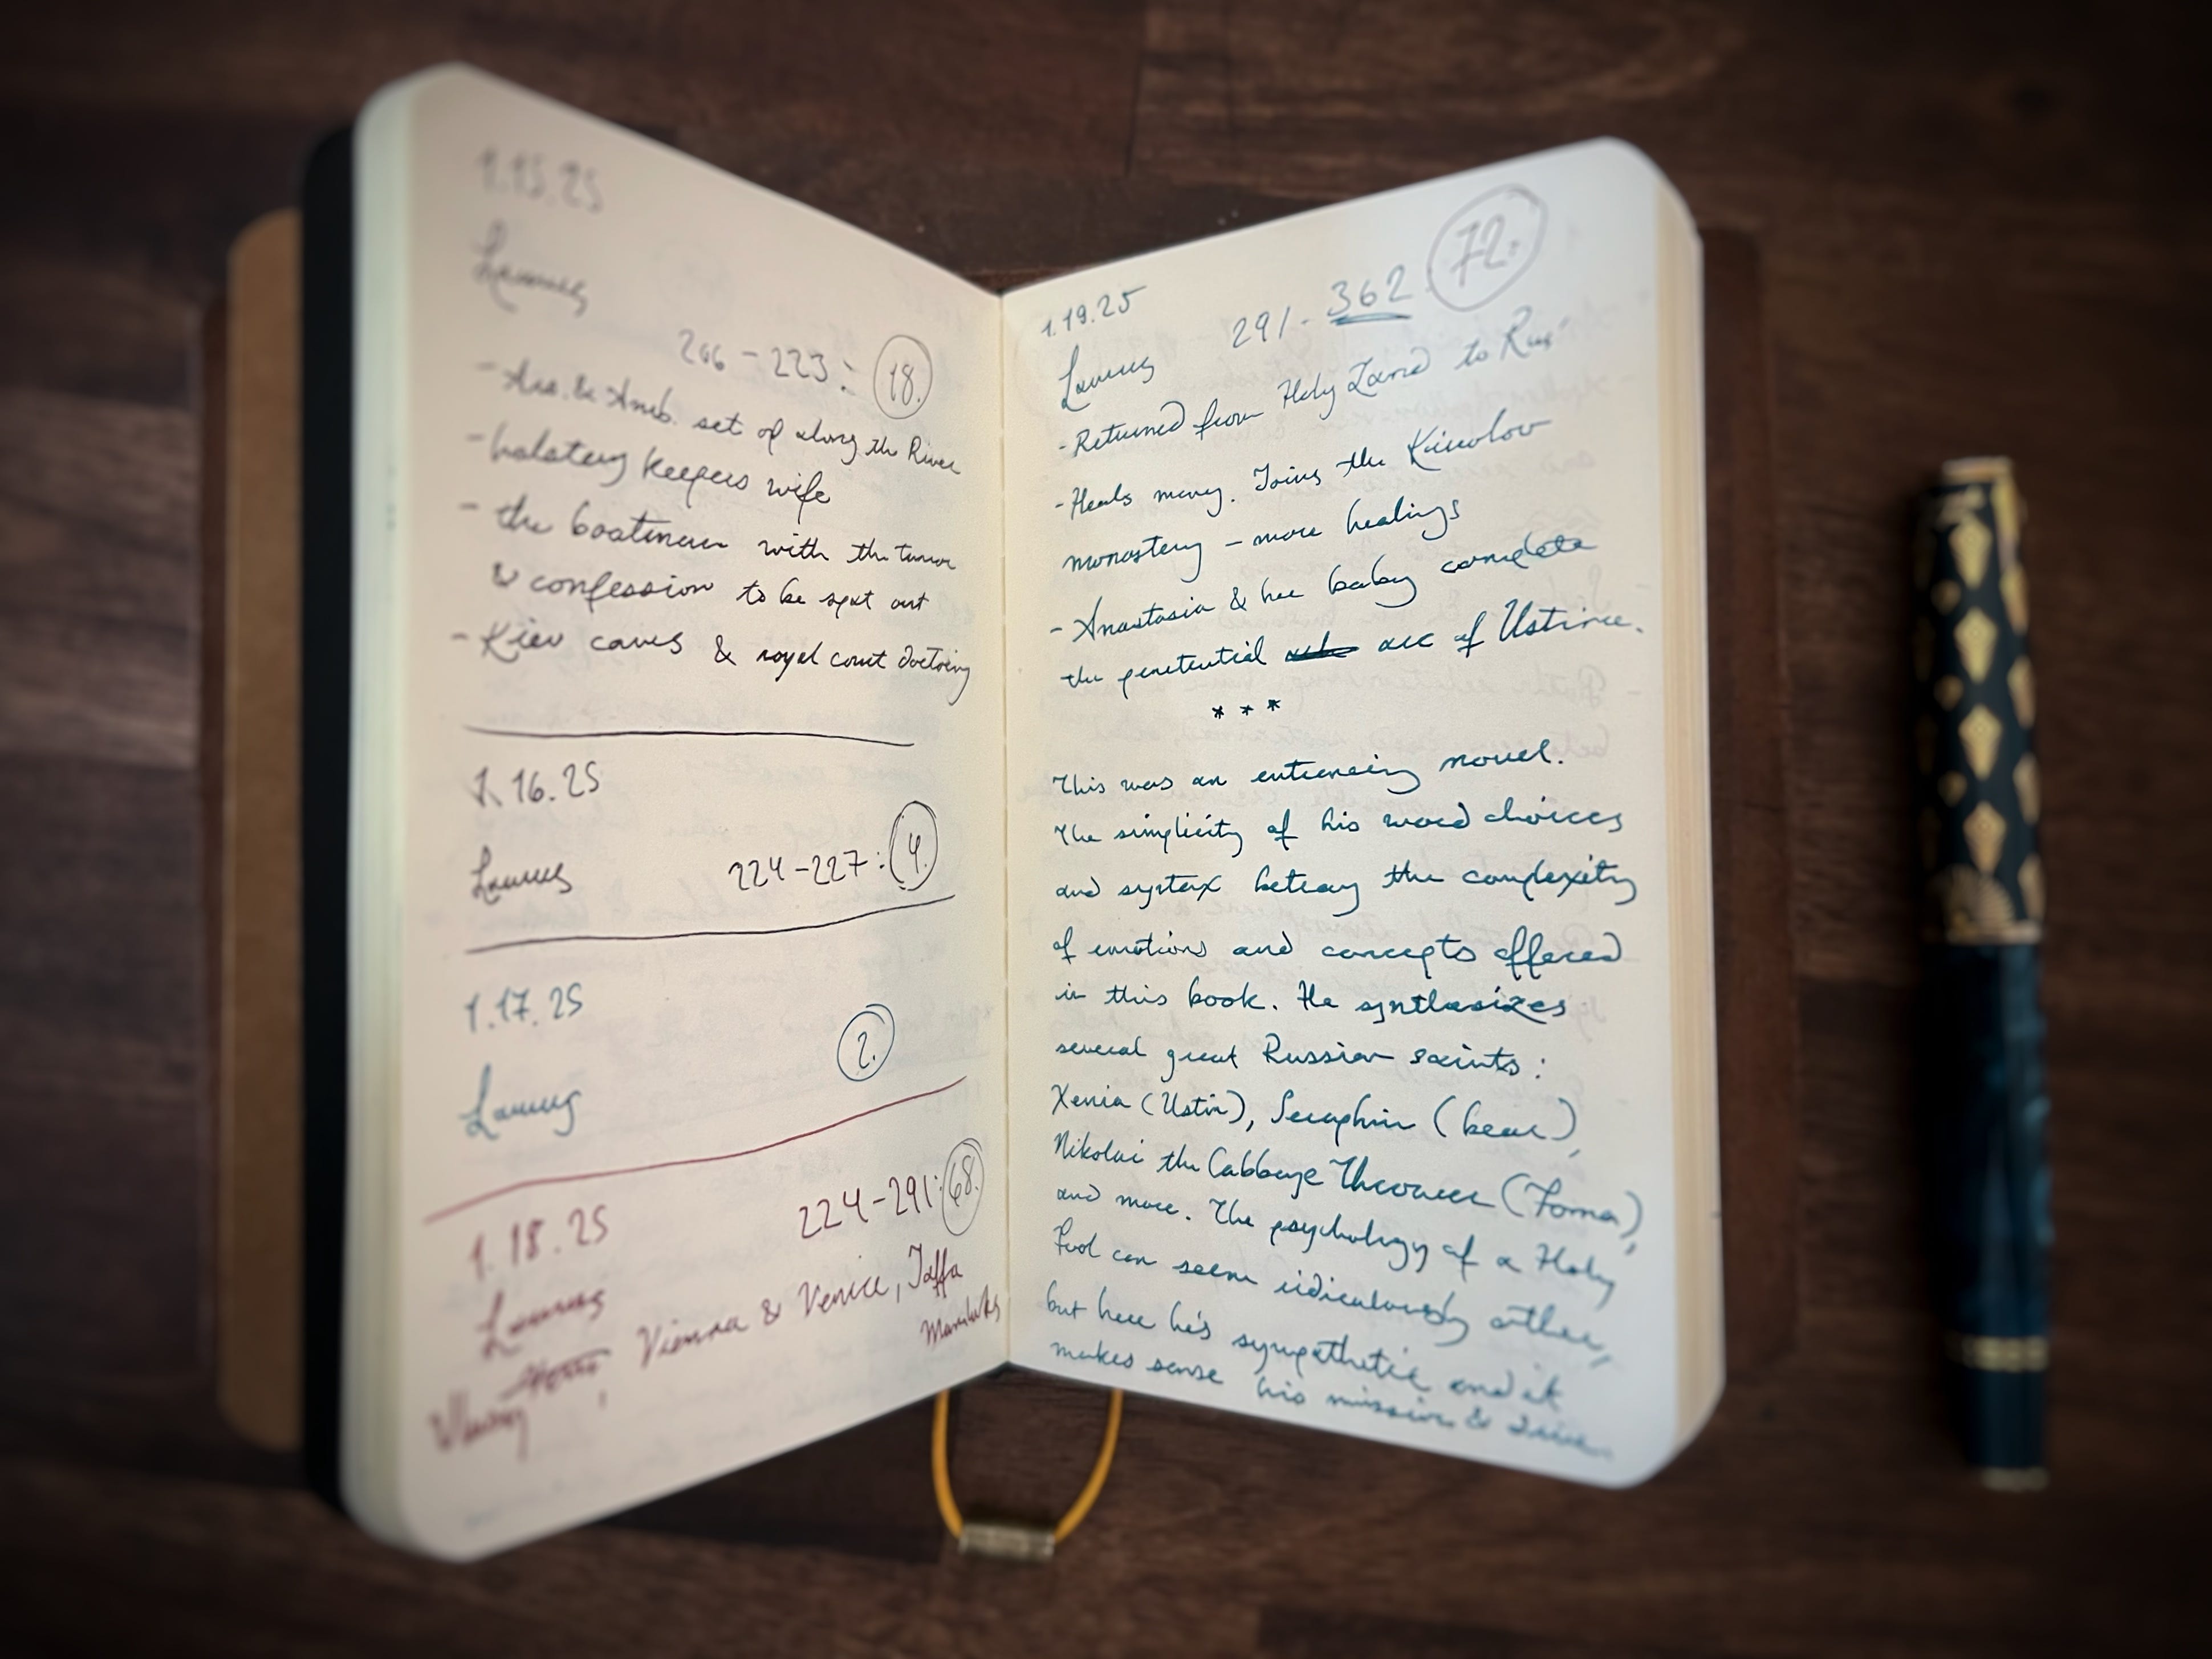 1.15.25
Laurus
206-223: 18.
- Ars. & Amb. set of along the River
- holstery keepers wife
- the boatman with the tumor
& confession to be spat out
- Kiev caves & royal court doctoring
1.16.25
Laurus 224-227: 4.
1.17.25
2.
Laurus
1.18.25
224-291: 68.
Laurus
Vienna & Venice, Jaffa
Mamluks
1.19.25
291-362 72.
Laurus
- Returned from Holy Land to Rus'
- Heals many. Joins the Kirilov
monastery - more healings
- Anastasia & her baby complete
the penetential arc of Ustina.
* * *
This was an entrancing novel.
The simplicity of his word choices
and syntax betray the complexity
of emotions and concepts offered
in this book. He synthesizes
several great Russian saints:
Xenia (Ustin), Seraphim (bear),
Nikolai the Cabbage Thrower (Foma),
and more. The psychology of a Holy
Fool can seem ridiculously other,
but here he's sympathetic and it
makes sense his mission & drive.